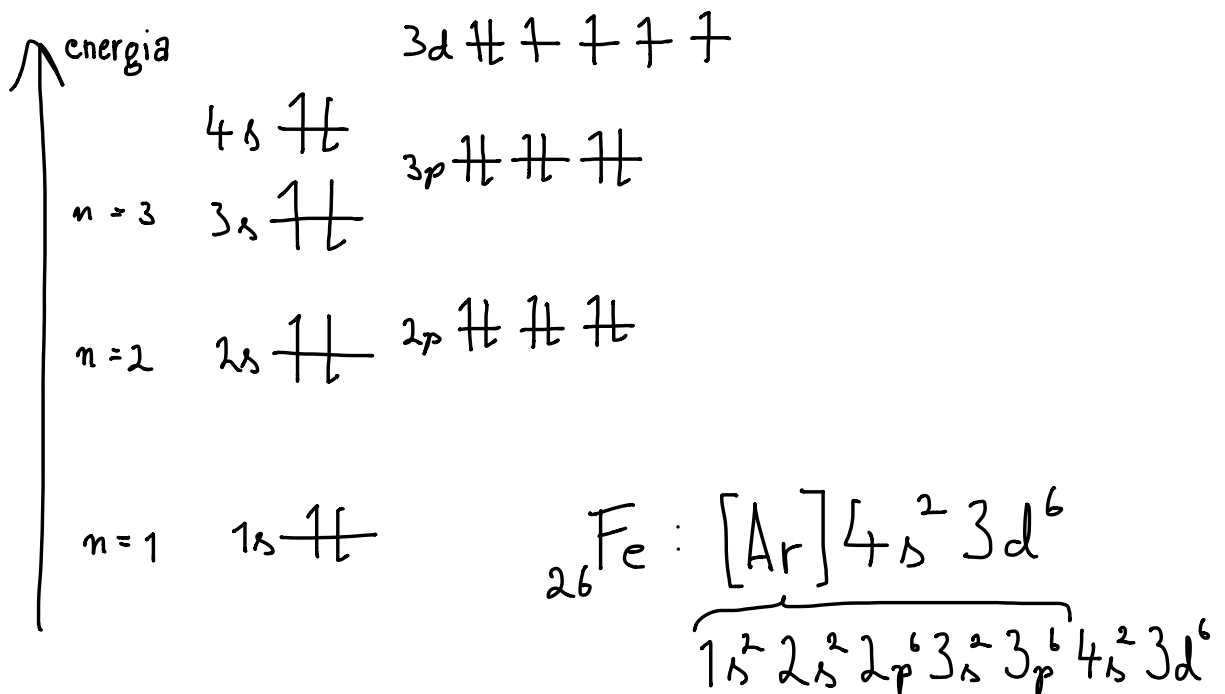 energia
3d ⥮ ↿ ↿ ↿ ↿
4s ⥮
3p ⥮ ⥮ ⥮
n = 3 3s ⥮
2p ⥮ ⥮ ⥮
n = 2 2s ⥮
n = 1 1s ⥮
₂₆Fe : [Ar] 4s² 3d⁶
1s² 2s² 2p⁶ 3s² 3p⁶ 4s² 3d⁶